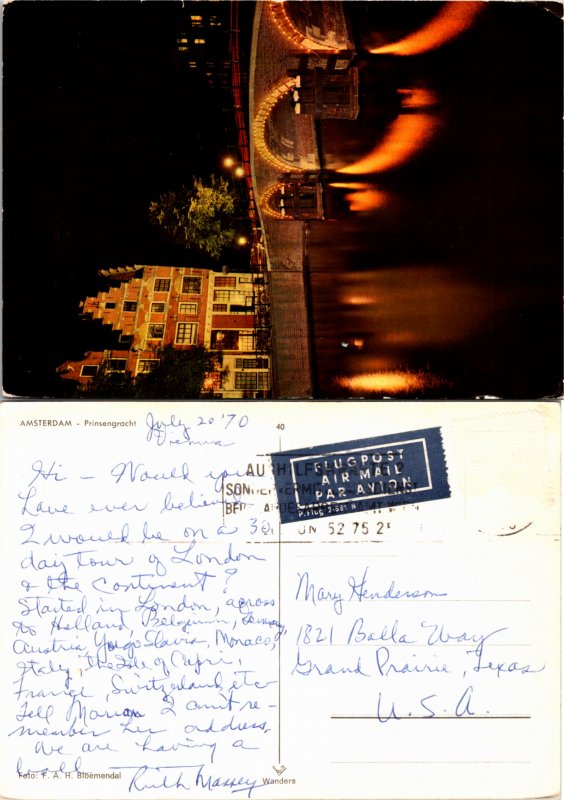 AMSTERDAM - Prinsengracht
July 20 '70
Vienna
40
Hi - Would you
have ever believed
I would be on a 30
day tour of London
& the Continent?
Started in London, across
to Holland, Belgium, Germany,
Austria, Yugo Slavia, Monaco,
Italy, the Isle of Capri,
France, Switzerland, etc
Tell Marian I can't re-
member her address.
We are having a
ball
Ruth Massey
Foto: F. A. H. Bloemendal
Wanders
FLUGPOST
AIR MAIL
PAR AVION
52 75 2
Mary Henderson
1821 Balla Way
Grand Prairie, Texas
U. S. A.